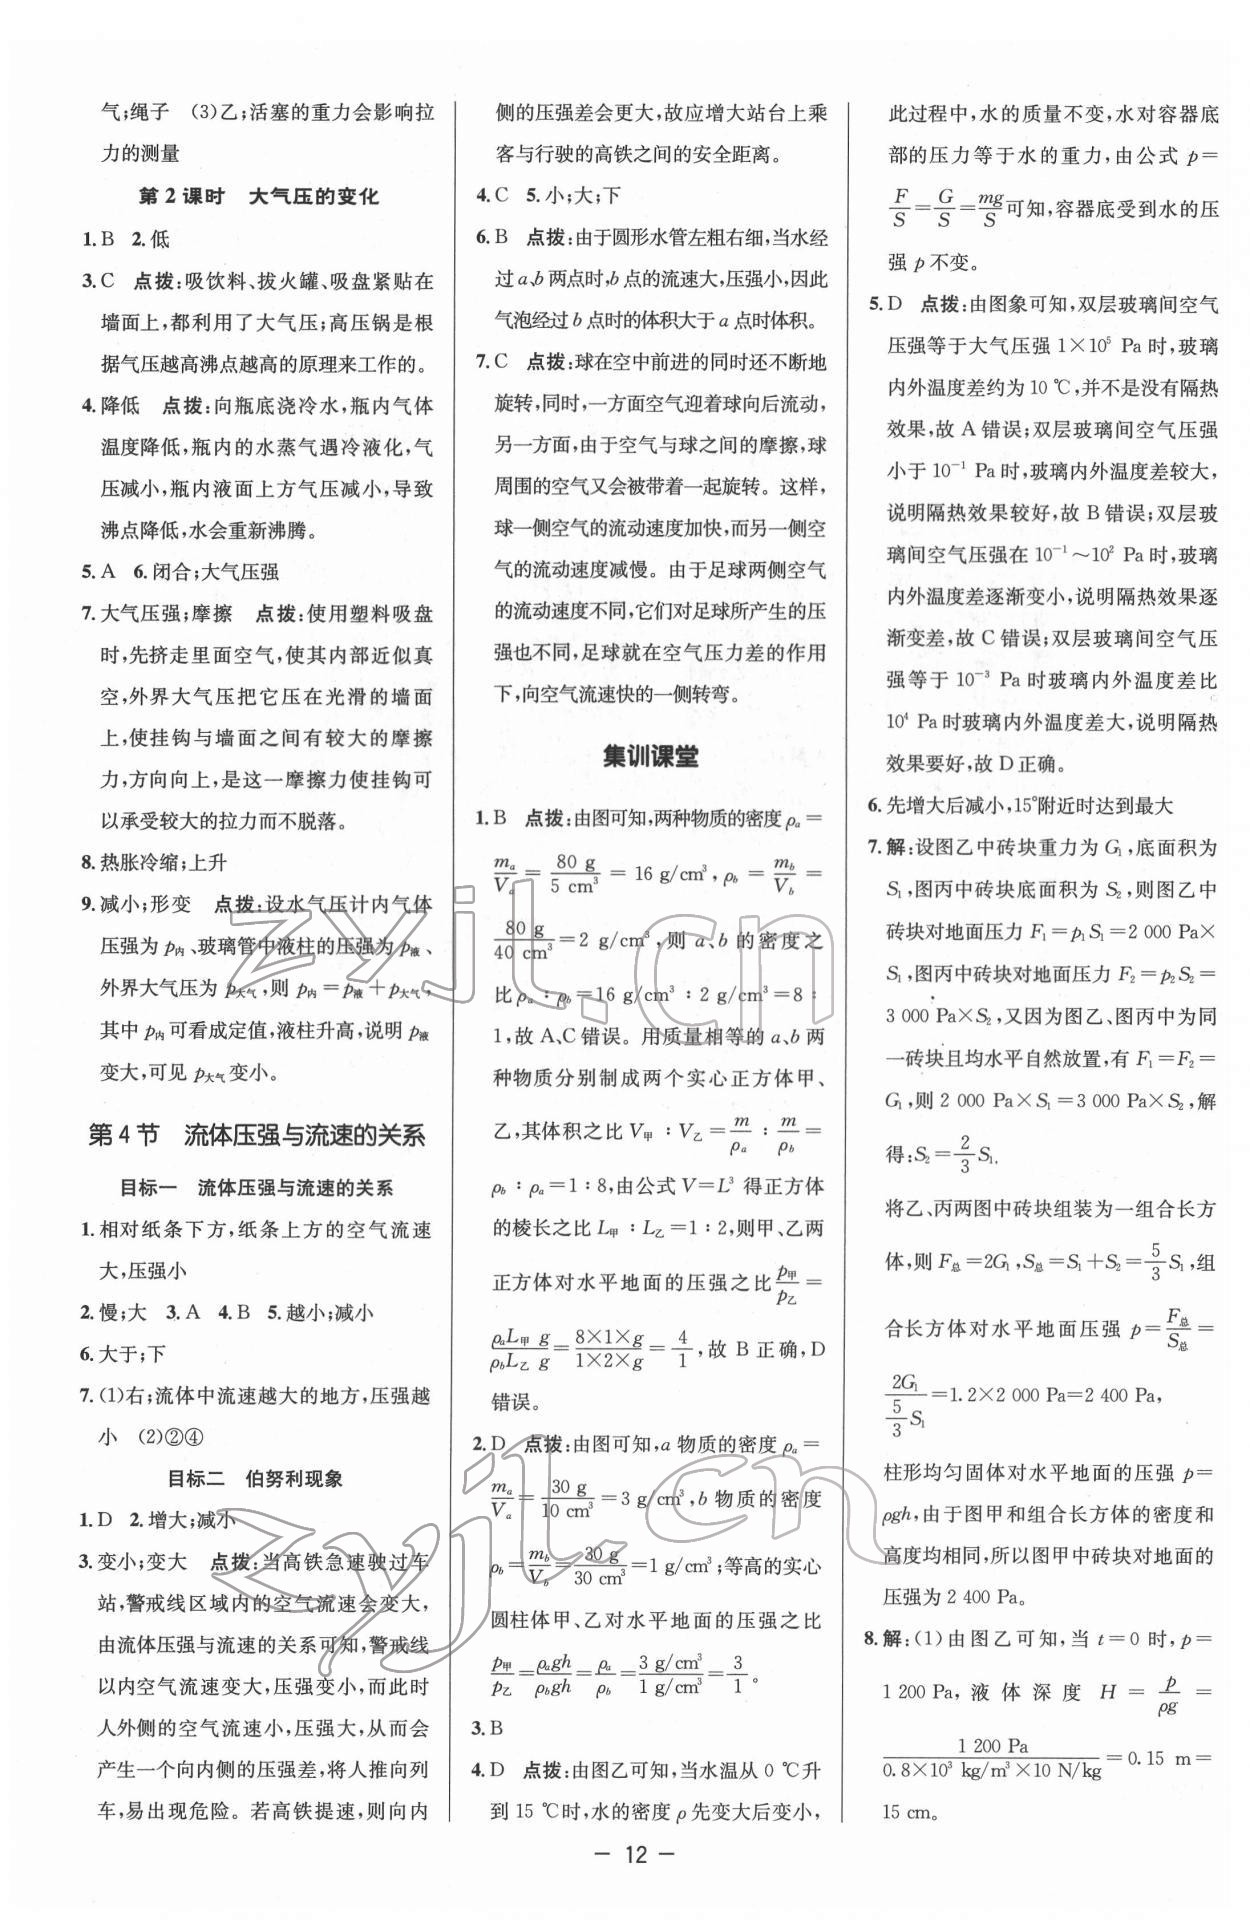 气;绳子　(3)乙;活塞的重力会影响拉
力的测量
第 2 课时　大气压的变化
1. B　2. 低
3. C　点拨:吸饮料、拔火罐、吸盘紧贴在
墙面上,都利用了大气压;高压锅是根
据气压越高沸点越高的原理来工作的。
4. 降低　点拨:向瓶底浇冷水,瓶内气体
温度降低,瓶内的水蒸气遇冷液化,气
压减小,瓶内液面上方气压减小,导致
沸点降低,水会重新沸腾。
5. A　6. 闭合;大气压强
7. 大气压强;摩擦　点拨:使用塑料吸盘
时,先挤走里面空气,使其内部近似真
空,外界大气压把它压在光滑的墙面
上,使挂钩与墙面之间有较大的摩擦
力,方向向上,是这一摩擦力使挂钩可
以承受较大的拉力而不脱落。
8. 热胀冷缩;上升
9. 减小;形变　点拨:设水气压计内气体
压强为 p内、玻璃管中液柱的压强为 p液、
外界大气压为 p大气,则 p内＝p液＋p大气,
其中 p内可看成定值,液柱升高,说明 p液
变大,可见 p大气变小。
第 4 节　流体压强与流速的关系
目标一　流体压强与流速的关系
1. 相对纸条下方,纸条上方的空气流速
大,压强小
2. 慢;大　3. A　4. B　5. 越小;减小
6. 大于;下
7. (1)右;流体中流速越大的地方,压强越
小　(2)②④
目标二　伯努利现象
1. D　2. 增大;减小
3. 变小;变大　点拨:当高铁急速驶过车
站,警戒线区域内的空气流速会变大,
由流体压强与流速的关系可知,警戒线
以内空气流速变大,压强变小,而此时
人外侧的空气流速小,压强大,从而会
产生一个向内侧的压强差,将人推向列
车,易出现危险。若高铁提速,则向内
侧的压强差会更大,故应增大站台上乘
客与行驶的高铁之间的安全距离。
4. C　5. 小;大;下
6. B　点拨:由于圆形水管左粗右细,当水经
过 a、b 两点时,b 点的流速大,压强小,因此
气泡经过 b 点时的体积大于 a 点时体积。
7. C　点拨:球在空中前进的同时还不断地
旋转,同时,一方面空气迎着球向后流动,
另一方面,由于空气与球之间的摩擦,球
周围的空气又会被带着一起旋转。这样,
球一侧空气的流动速度加快,而另一侧空
气的流动速度减慢。由于足球两侧空气
的流动速度不同,它们对足球所产生的压
强也不同,足球就在空气压力差的作用
下,向空气流速快的一侧转弯。
集训课堂
1. B　点拨:由图可知,两种物质的密度 ρa＝
ma/Va＝80 g/5 cm³＝16 g/cm³,ρb＝mb/Vb＝
80 g/40 cm³＝2 g/cm³,则 a、b 的密度之
比 ρa∶ρb＝16 g/cm³∶2 g/cm³＝8∶
1,故 A、C 错误。用质量相等的 a、b 两
种物质分别制成两个实心正方体甲、
乙,其体积之比 V甲∶V乙＝m/ρa∶m/ρb＝
ρb∶ρa＝1∶8,由公式 V＝L³ 得正方体
的棱长之比 L甲∶L乙＝1∶2,则甲、乙两
正方体对水平地面的压强之比 p甲/p乙＝
ρaL甲 g/ρbL乙 g＝8×1×g/1×2×g＝4/1,故 B 正确,D
错误。
2. D　点拨:由图可知,a 物质的密度 ρa＝
ma/Va＝30 g/10 cm³＝3 g/cm³,b 物质的密度
ρb＝mb/Vb＝30 g/30 cm³＝1 g/cm³;等高的实心
圆柱体甲、乙对水平地面的压强之比
p甲/p乙＝ρagh/ρbgh＝ρa/ρb＝3 g/cm³/1 g/cm³＝3/1。
3. B
4. D　点拨:由图乙可知,当水温从 0 ℃升
到 15 ℃时,水的密度 ρ 先变大后变小,
此过程中,水的质量不变,水对容器底
部的压力等于水的重力,由公式 p＝
F/S＝G/S＝mg/S可知,容器底受到水的压
强 p 不变。
5. D　点拨:由图象可知,双层玻璃间空气
压强等于大气压强 1×10⁵ Pa 时,玻璃
内外温度差约为 10 ℃,并不是没有隔热
效果,故 A 错误;双层玻璃间空气压强
小于 10⁻¹ Pa 时,玻璃内外温度差较大,
说明隔热效果较好,故 B 错误;双层玻
璃间空气压强在 10⁻¹～10² Pa 时,玻璃
内外温度差逐渐变小,说明隔热效果逐
渐变差,故 C 错误;双层玻璃间空气压
强等于 10⁻³ Pa 时玻璃内外温度差比
10⁴ Pa 时玻璃内外温度差大,说明隔热
效果要好,故 D 正确。
6. 先增大后减小,15°附近时达到最大
7. 解:设图乙中砖块重力为 G₁,底面积为
S₁,图丙中砖块底面积为 S₂,则图乙中
砖块对地面压力 F₁＝p₁S₁＝2 000 Pa×
S₁,图丙中砖块对地面压力 F₂＝p₂S₂＝
3 000 Pa×S₂,又因为图乙、图丙中为同
一砖块且均水平自然放置,有 F₁＝F₂＝
G₁,则 2 000 Pa×S₁＝3 000 Pa×S₂,解
得:S₂＝2/3 S₁.
将乙、丙两图中砖块组装为一组合长方
体,则 F总＝2G₁,S总＝S₁＋S₂＝5/3 S₁,组
合长方体对水平地面压强 p＝F总/S总＝
2G₁/(5/3 S₁)＝1.2×2 000 Pa＝2 400 Pa,
柱形均匀固体对水平地面的压强 p＝
ρgh,由于图甲和组合长方体的密度和
高度均相同,所以图甲中砖块对地面的
压强为 2 400 Pa。
8. 解:(1)由图乙可知,当 t＝0 时,p＝
1 200 Pa,液体深度 H＝p/ρg＝
1 200 Pa/0.8×10³ kg/m³×10 N/kg＝0.15 m＝
15 cm。
— 12 —
zyjl.cn
zyjl.cn